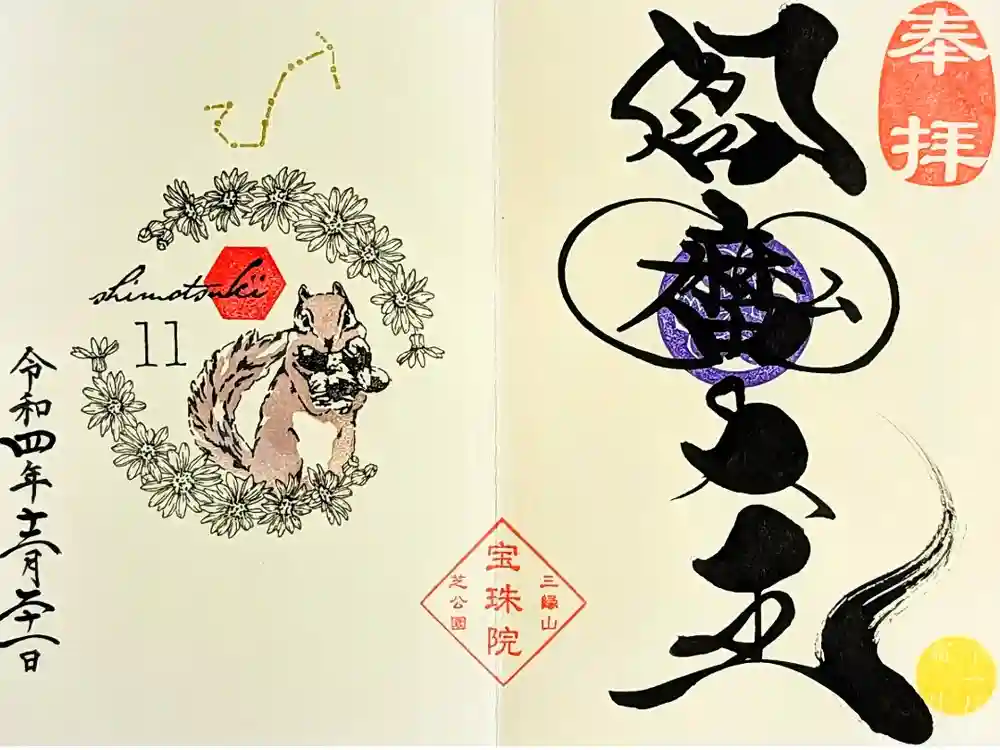 奉拝
閻魔大王
三縁山
宝珠院
芝公園
shimotsuki
11
令和四年十一月二十一日